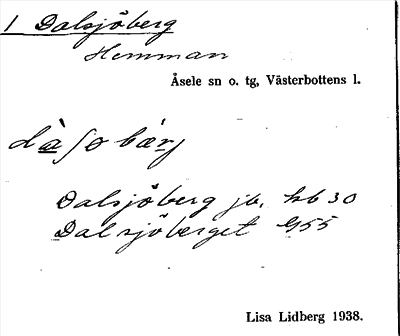 1 Dalsjöberg
Hemman
Åsele sn o. tg, Västerbottens l.
Dalsjöberg jb, hb 30
Dalsjöberget G55
Lisa Lidberg 1938.